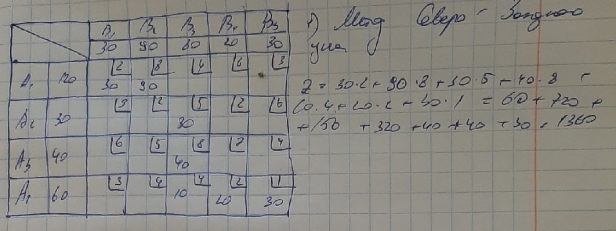 B₁ B₂ B₃ B₄ B₅
30 90 80 20 30
A₁ 120 2 8 4 6 3
30 90
A₂ 30 3 2 5 2 6
30
A₃ 40 6 5 8 7 4
40
A₄ 60 3 4 4 2 1
10 20 30
1) Метод Северо-Западного
угла
Z = 30·2 + 90·8 + 30·5 + 40·8 +
10·4 + 20·2 + 30·1 = 60 + 720 +
+ 150 + 320 + 40 + 40 + 30 = 1360